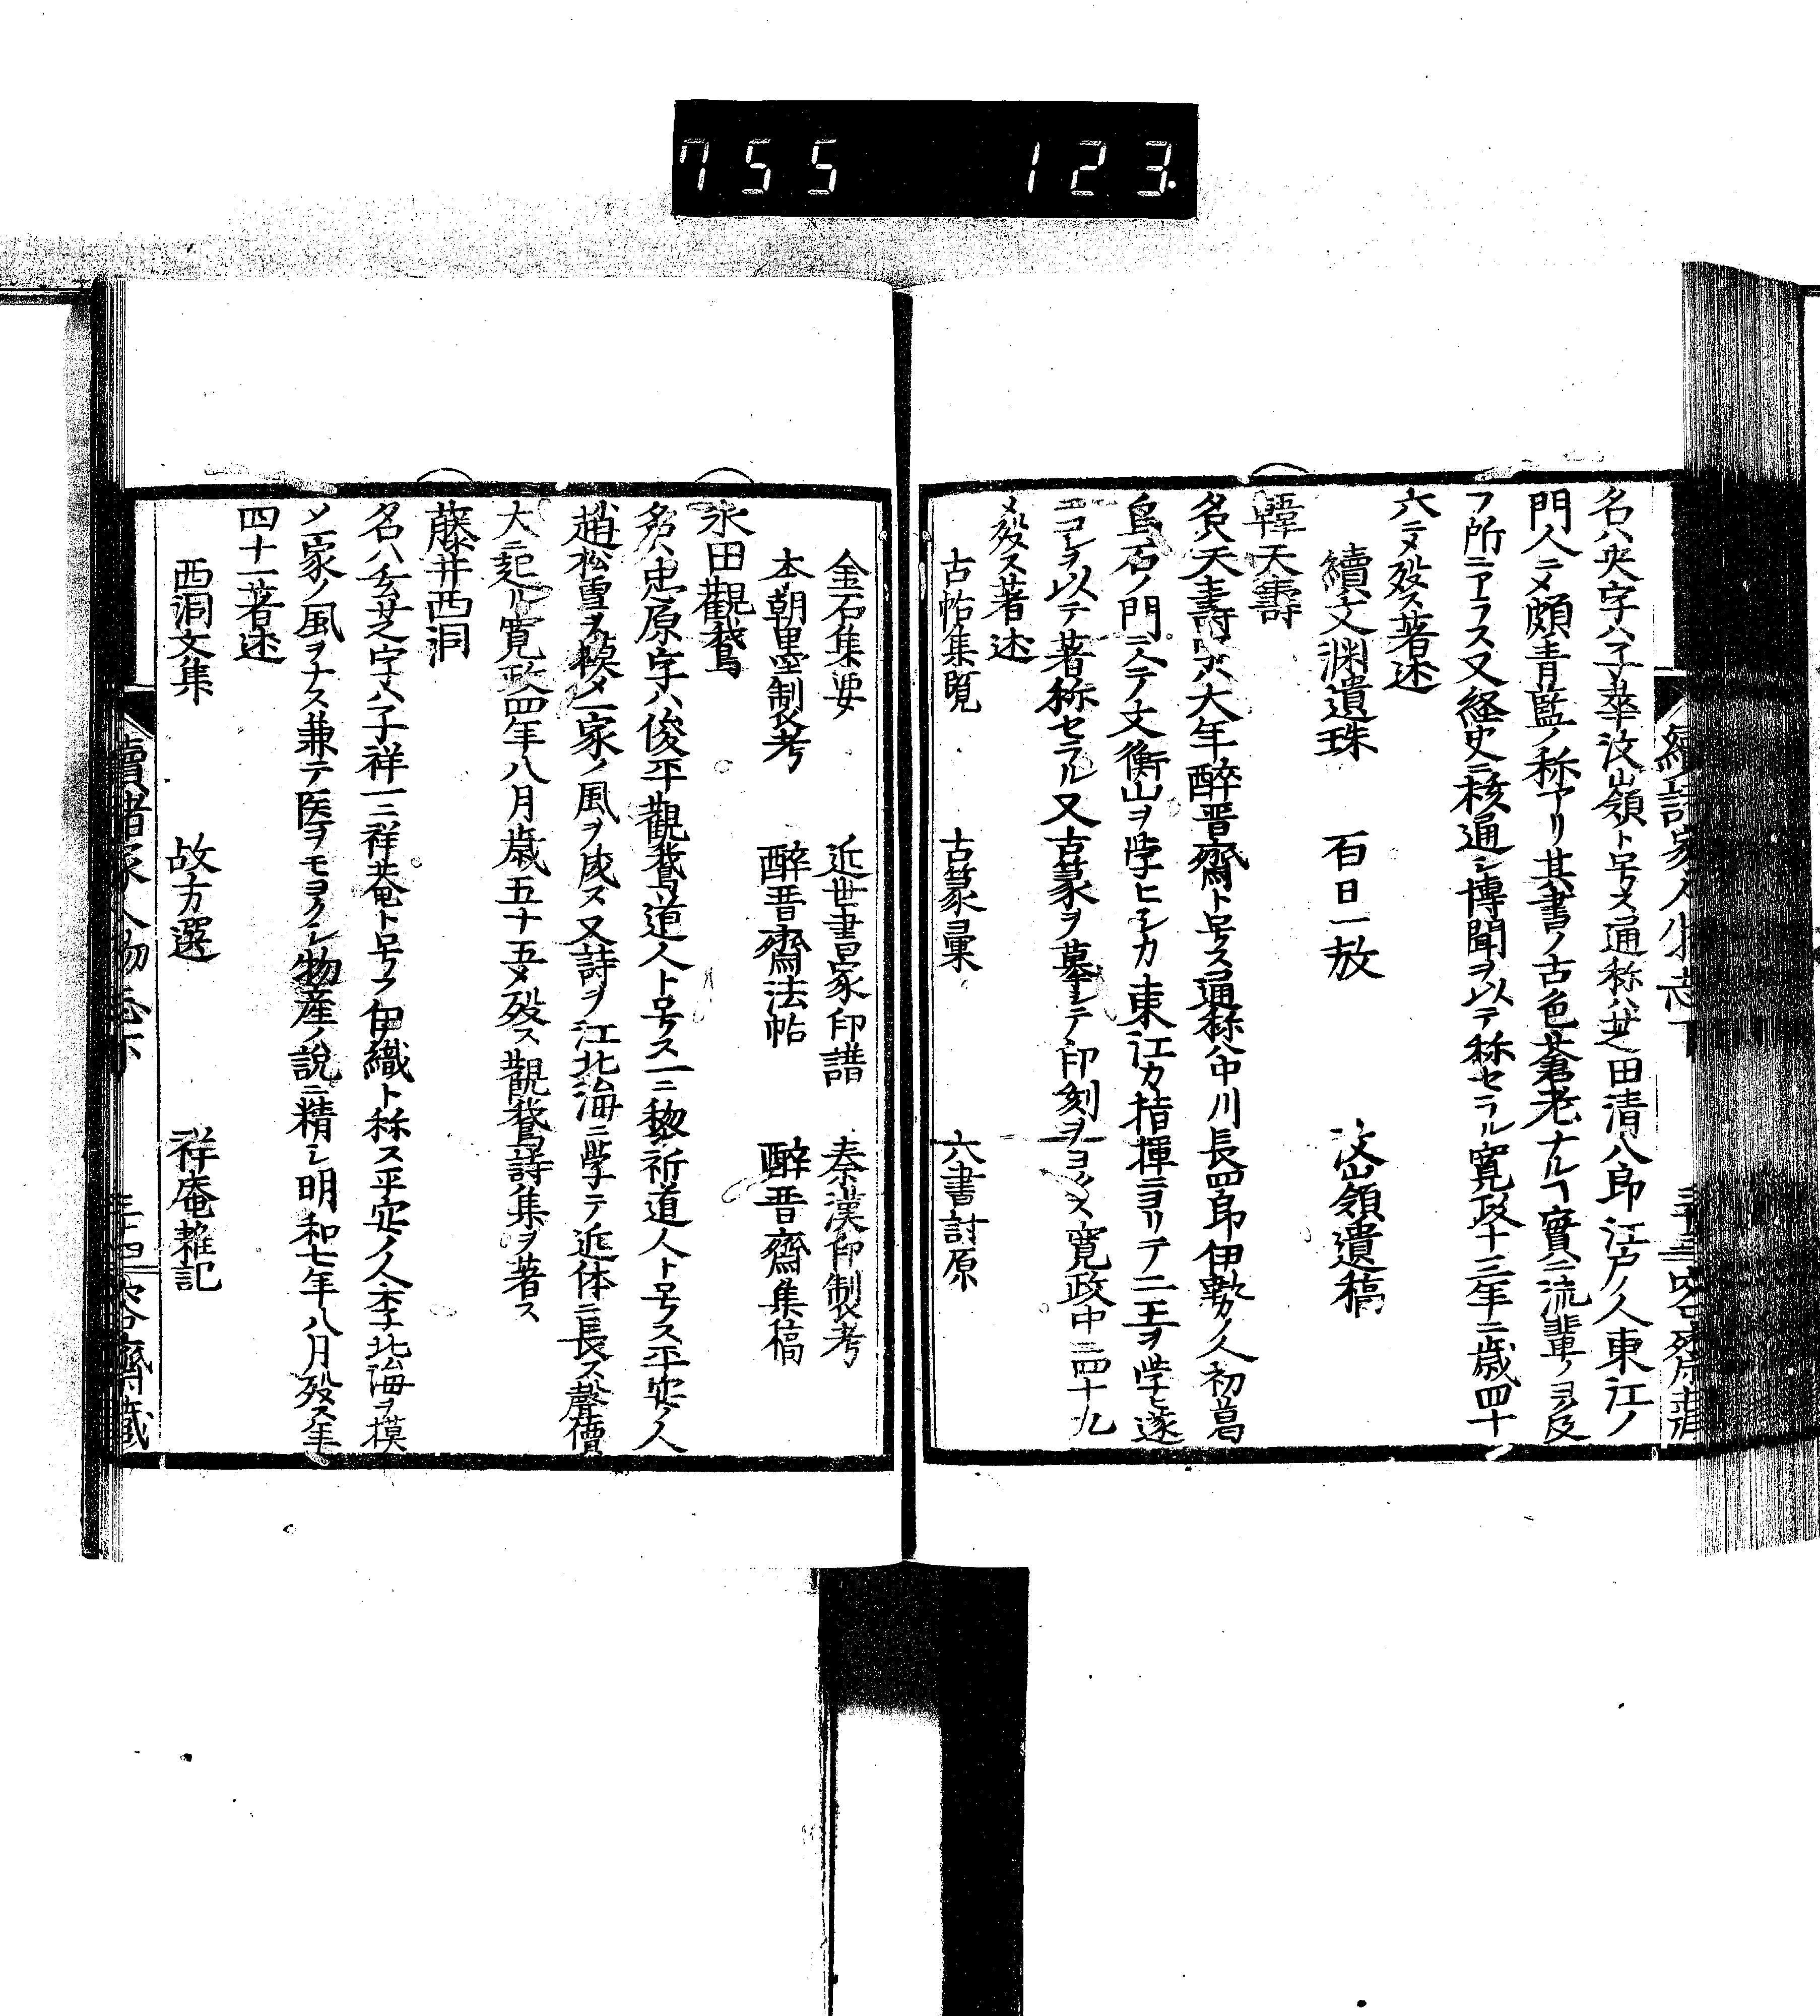 755 123
名ハ央字ハ子華汶嶺ト号ス通称ハ芝田清八郎江戸ノ人東江ノ
門人ニメ頗青藍ノ称アリ其書ノ古色蒼老ナルヿ實ニ流輩ノヲ及
フ所ニアラス又経史ニ核通シ博聞ヲ以テ称セラル寛政十二年ニ歳四十
六ニメ歿ス著述
續文渕遺珠 百日一放 汶嶺遺稿
韓天壽
名ハ天壽字ハ大年酔晋齋ト号ス通称ハ中川長四郎伊勢ノ人初葛
烏石ノ門ニ入テ文衡山ヲ学ヒシカ東江カ指揮ニヨリテ二王ヲ学ヒ遂
ニコレヲ以テ著称セラル又古篆ヲ摹シテ印刻ヲヨクス寛政中ニ四十九
メ歿ス著述
古帖集覧 古篆彙 六書討原
金石集要 近世書家印譜 秦漢印制考
本朝墨制考 酔晋齋法帖 酔晋齋集稿
永田觀鵞
名ハ忠原字ハ俊平觀鵞道人ト号ス一ニ黎祈道人ト号ス平安ノ人
趙松雪ヲ模メ一家ノ風ヲ成ス又詩ヲ江北海ニ学テ近体ニ長ス聲價
大ニ起ル寛政四年八月歳五十五ニメ歿ス觀鵞詩集ヲ著ス
藤井西洞
名ハ玄芝字ハ子祥一ニ祥菴ト号フ伊織ト称ス平安ノ人李北海ヲ模
メ一家ノ風ヲナス兼テ医ヲモヨクシ物産ノ説ニ精シ明和七年八月歿ス年
四十一著述
西洞文集 故方選 祥庵雑記
續諸家人物志下 三十四 容齋藏